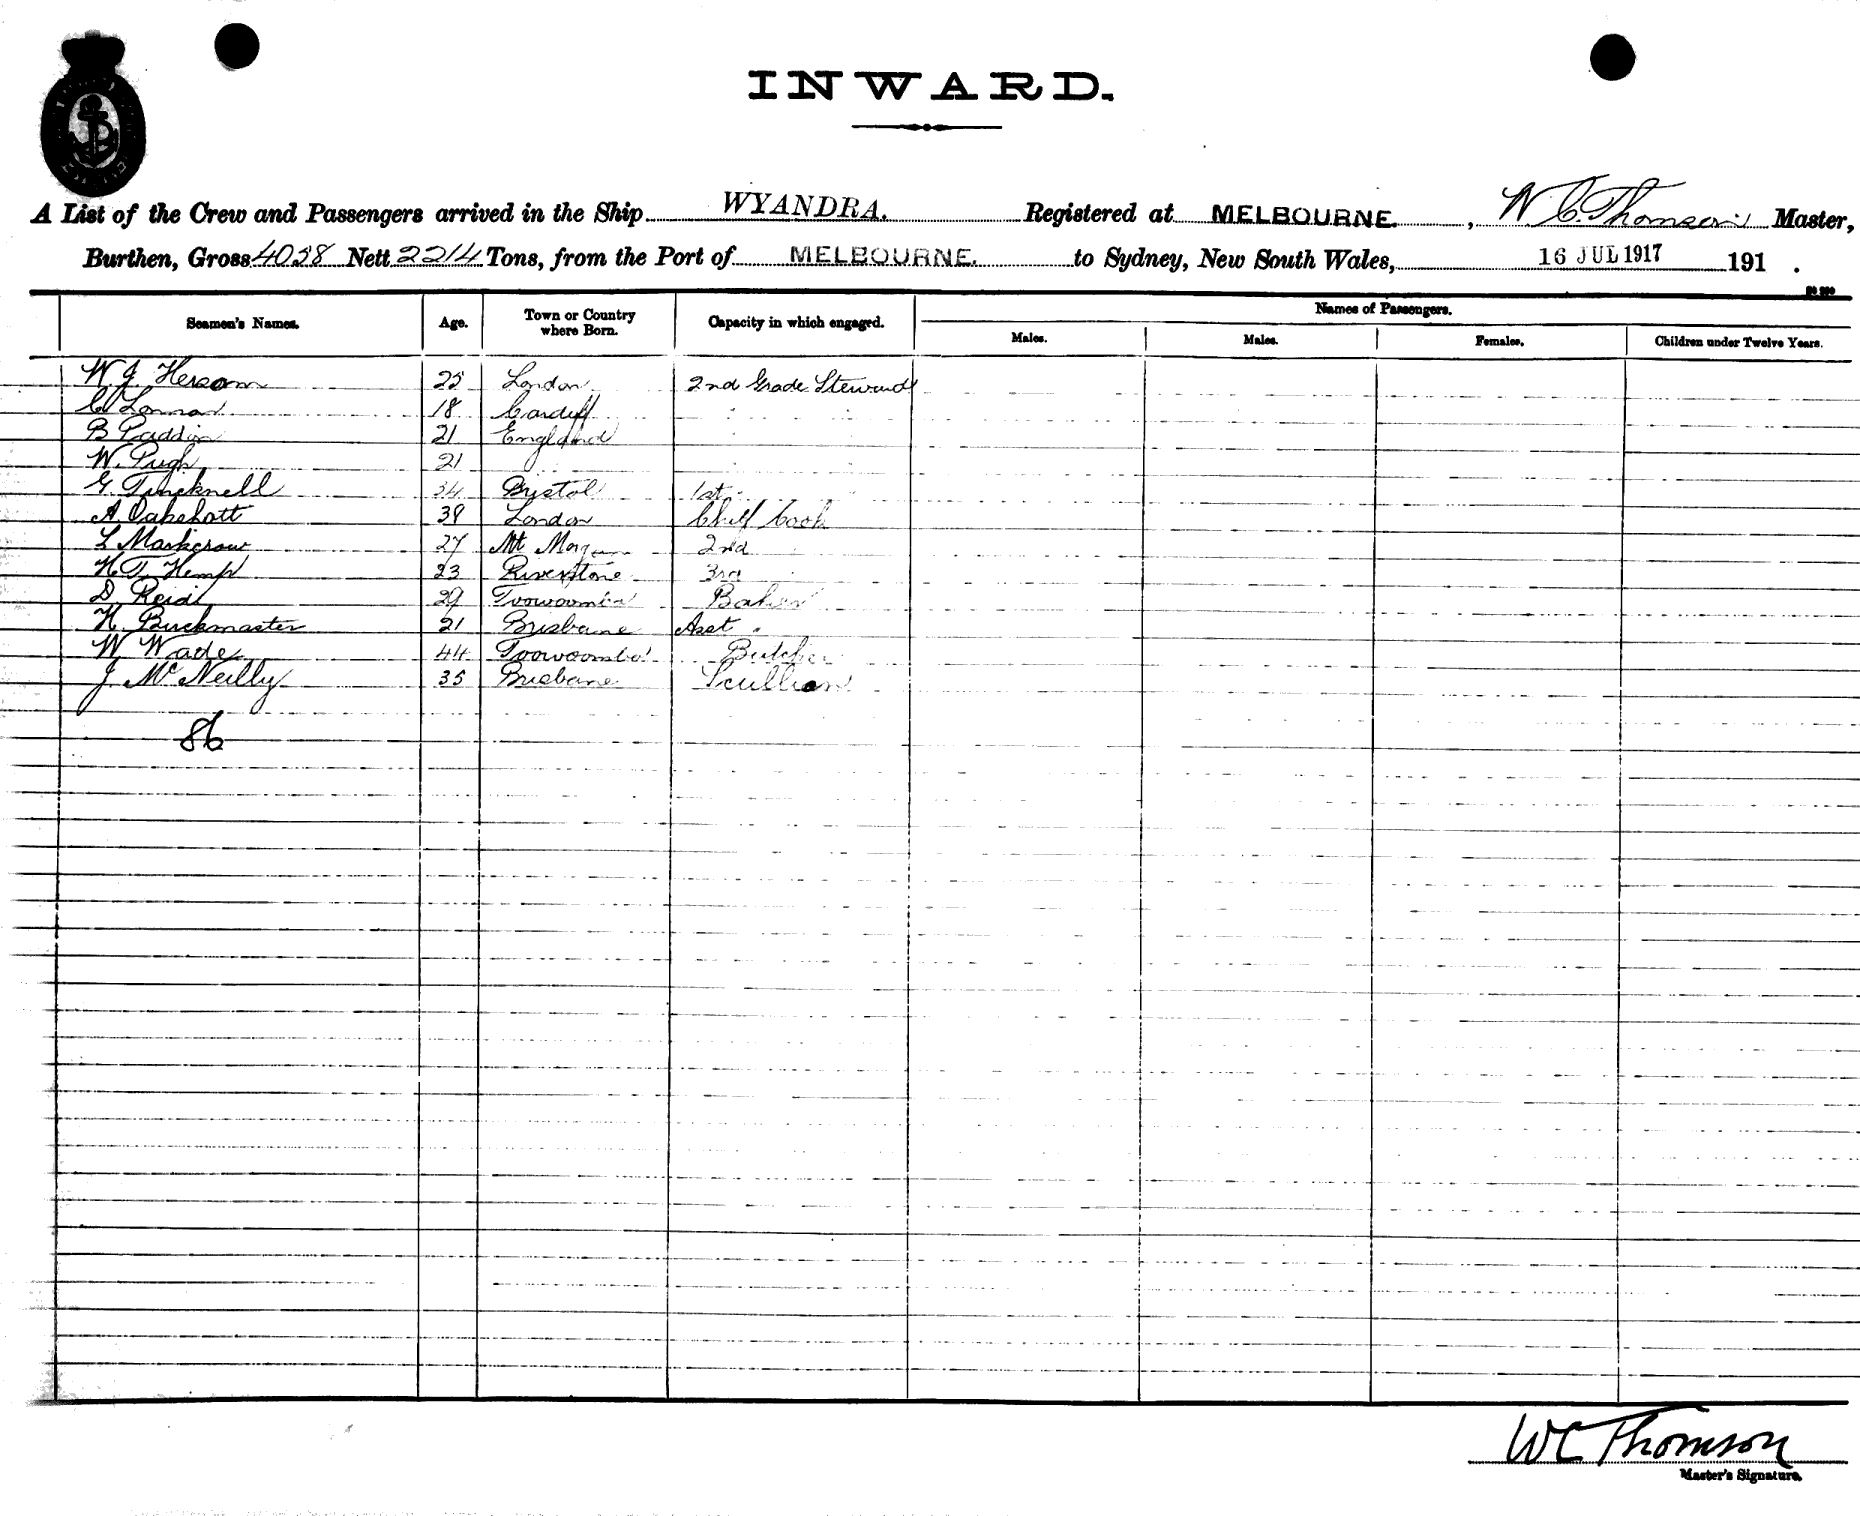 INWARD.
A List of the Crew and Passengers arrived in the Ship WYANDRA. Registered at MELBOURNE. , W C Thomson Master,
Burthen, Gross 4058 Nett 2214 Tons, from the Port of MELBOURNE. to Sydney, New South Wales, 16 JUL 1917 191 .
Names of Passengers.
Seamen's Names. Age. Town or Country where Born. Capacity in which engaged. Males. Males. Females. Children under Twelve Years.
W J Hersom 25 London 2nd Grade Steward
C 18 Cardiff "
B 21 England "
W. Pugh 21
G. Tincknell 34 Bristol 1st "
A Oakshott 38 London Chief Cook
L Markcrow 27 Mt Morgan 2nd "
H. T. Hemp 23 Riverstone 3rd
D. Reid 29 Toowoomba Baker
H. Buckmaster 21 Brisbane Asst "
W Wade 44 Toowoomba Butcher
J. McNeilly 35 Brisbane Scullion
86
WC Thomson
Master's Signature.